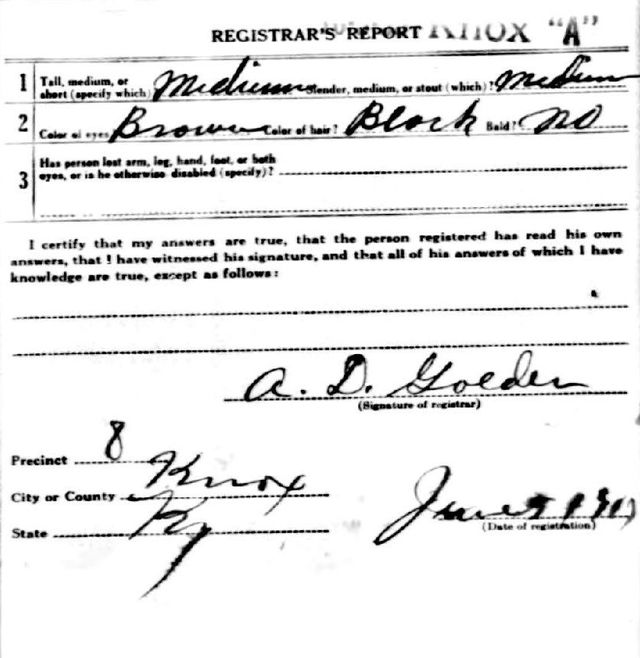 REGISTRAR'S REPORT KNOX "A"
1 Tall, medium, or short (specify which) Medium Slender, medium, or stout (which)? Medium
2 Color of eyes Brown Color of hair? Black Bald? NO
3 Has person lost arm, leg, hand, foot, or both
eyes, or is he otherwise disabled (specify)?
I certify that my answers are true, that the person registered has read his own
answers, that I have witnessed his signature, and that all of his answers of which I have
knowledge are true, except as follows:
A. D. Golden
(Signature of registrar)
Precinct 8
City or County Knox
State Ky
June 5 1917
(Date of registration)